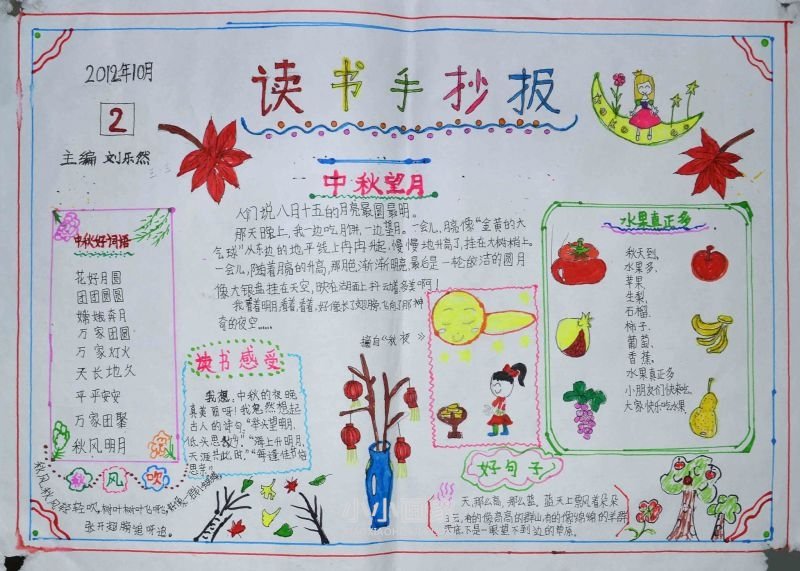 2012年10月
读书手抄报
2
主编 刘乐然
中秋望月
人们说八月十五的月亮最圆最明。
那天晚上，我一边吃月饼，一边望月。一会儿，月亮像“金黄的大
气球”从东边的地平线上冉冉升起，慢慢地升高了，挂在大树梢上。
一会儿，随着月亮的升高，那月色渐渐明亮，最后是一轮皎洁的圆月
像大银盘挂在天空，映在湖面上
我看着明月，看着，看着，好像长了翅膀飞向了那神
奇的夜空……
摘自“秋夜”
中秋好词语
花好月圆
团团圆圆
嫦娥奔月
万家团圆
万家灯火
天长地久
平平安安
万家团聚
秋风明月
读书感受
我想，中秋的夜晚
真美丽呀！我忽然想起
古人的诗句，“举头望明月，
低头思故乡”“海上升明月，
天涯共此时”“每逢佳节倍
思亲”
水果真正多
秋天到，
水果多，
苹果，
生梨，
石榴，
柿子，
葡萄，
香蕉，
水果真正多
小朋友们快来吃，
大家快乐吃水果
秋风吹
秋风秋风轻轻吹，树叶树叶飞呀飞，
张开翅膀追呀追。
好句子
天，那么高，那么蓝。蓝天上飘着朵朵
白云，有的像高高的群山，有的像绵绵的羊群
天底下是一眼望不到边的草原。